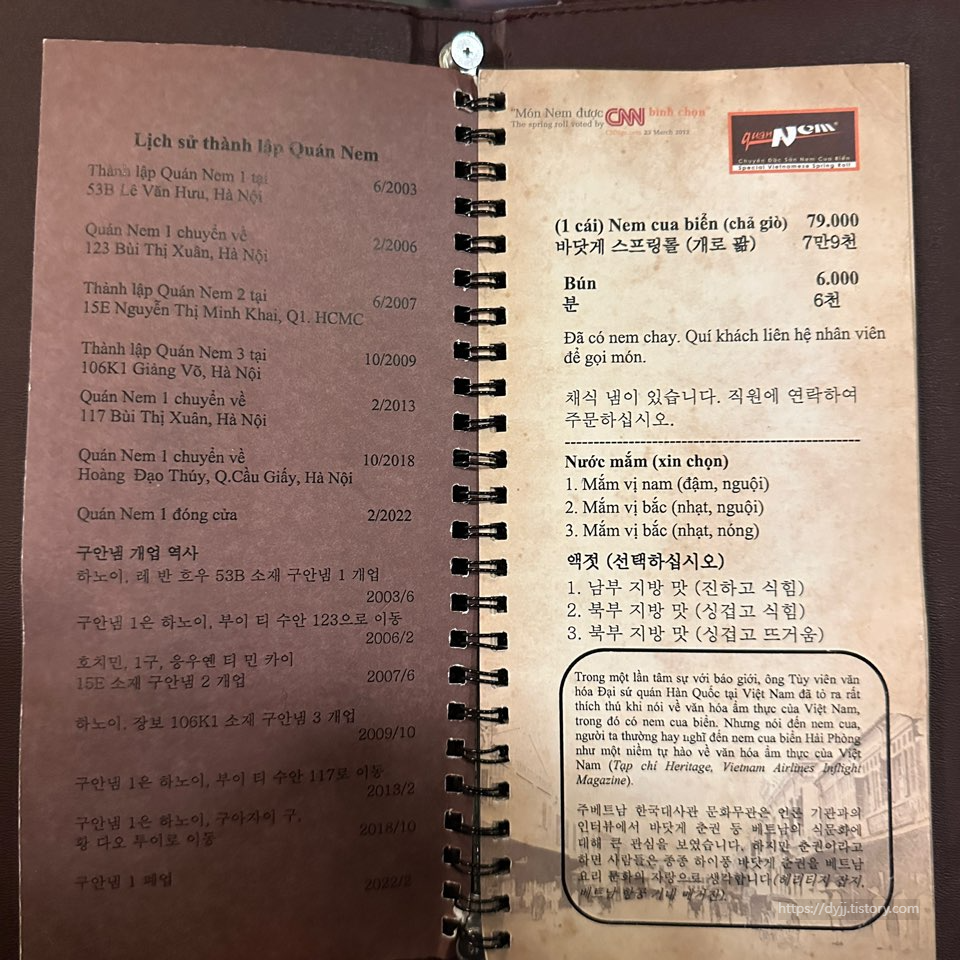 Lịch sử thành lập Quán Nem
Thành lập Quán Nem 1 tại
53B Lê Văn Hưu, Hà Nội
6/2003
Quán Nem 1 chuyển về
123 Bùi Thị Xuân, Hà Nội
2/2006
Thành lập Quán Nem 2 tại
15E Nguyễn Thị Minh Khai, Q1. HCMC
6/2007
Thành lập Quán Nem 3 tại
106K1 Giảng Võ, Hà Nội
10/2009
Quán Nem 1 chuyển về
117 Bùi Thị Xuân, Hà Nội
2/2013
Quán Nem 1 chuyển về
Hoàng Đạo Thúy, Q.Cầu Giấy, Hà Nội
10/2018
Quán Nem 1 đóng cửa
2/2022
구안냄 개업 역사
하노이, 레 반 흐우 53B 소재 구안냄 1 개업
2003/6
구안냄 1은 하노이, 부이 티 수안 123으로 이동
2006/2
호치민, 1구, 응우옌 티 민 카이
15E 소재 구안냄 2 개업
2007/6
하노이, 장보 106K1 소재 구안냄 3 개업
2009/10
구안냄 1은 하노이, 부이 티 수안 117로 이동
2013/2
구안냄 1은 하노이, 구아자이 구,
황 다오 투이로 이동
2018/10
구안냄 1 폐업
2022/2
"Món Nem được CNN bình chọn"
The spring roll voted by
23 March 2012
quán Nem
Chuyên Đặc Sản Nem Cua Biển
Special Vietnamese Spring Roll
(1 cái) Nem cua biển (chả giò) 79.000
바닷게 스프링롤 (개로 팖) 7만9천
Bún 6.000
분 6천
Đã có nem chay. Quí khách liên hệ nhân viên
để gọi món.
채식 냄이 있습니다. 직원에 연락하여
주문하십시오.
Nước mắm (xin chọn)
1. Mắm vị nam (đậm, nguội)
2. Mắm vị bắc (nhạt, nguội)
3. Mắm vị bắc (nhạt, nóng)
액젓 (선택하십시오)
1. 남부 지방 맛 (진하고 식힘)
2. 북부 지방 맛 (싱겁고 식힘)
3. 북부 지방 맛 (싱겁고 뜨거움)
Trong một lần tâm sự với báo giới, ông Tùy viên văn
hóa Đại sứ quán Hàn Quốc tại Việt Nam đã tỏ ra rất
thích thú khi nói về văn hóa ẩm thực của Việt Nam,
trong đó có nem cua biển. Nhưng nói đến nem cua,
người ta thường hay nghĩ đến nem cua biển Hải Phòng
như một niềm tự hào về văn hóa ẩm thực của Việt
Nam (Tạp chí Heritage, Vietnam Airlines Inflight
Magazine).
주베트남 한국대사관 문화무관은 언론 기관과의
인터뷰에서 바닷게 춘권 등 베트남의 식문화에
대해 큰 관심을 보였습니다. 하지만 춘권이라고
하면 사람들은 종종 하이퐁 바닷게 춘권을 베트남
요리 문화의 자랑으로 생각합니다(헤리티지 잡지,
베트남 항공 기내 매거진).
https://dyjj.tistory.com